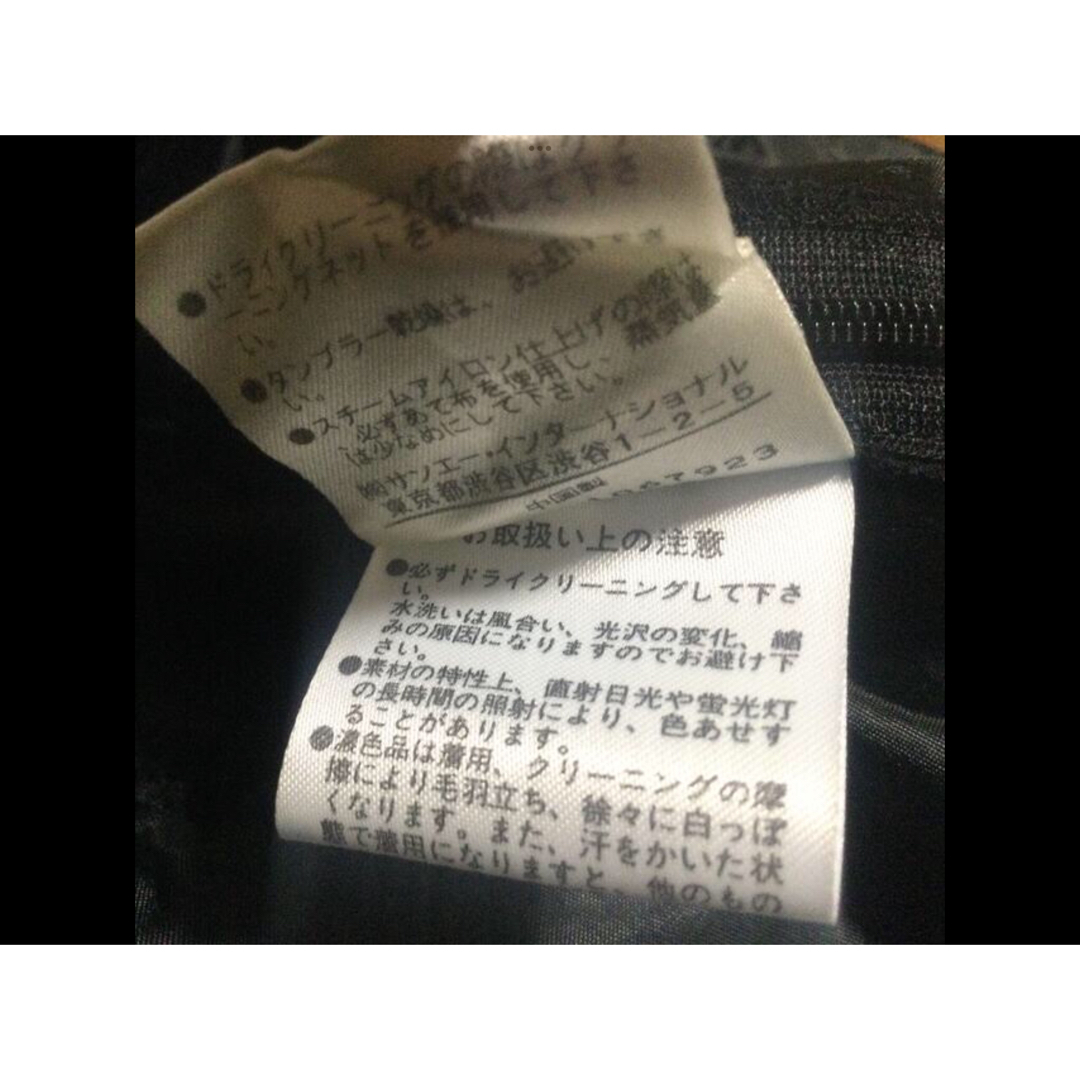 ●ドライクリーニングの際はク
ーニングネットを使用して下さ
い。
●タンブラー乾燥は、お避け下さ
い。
●スチームアイロン仕上げの際は
必ずあて布を使用し、蒸気量
は少なめにして下さい。
㈱サンエー・インターナショナル
東京都渋谷区渋谷1-2-5
中国製 1067923
お取扱い上の注意
●必ずドライクリーニングして下さ
い。
水洗いは風合い、光沢の変化、縮
みの原因になりますのでお避け下
さい。
●素材の特性上、直射日光や蛍光灯
の長時間の照射により、色あせす
ることがあります。
●濃色品は着用、クリーニングの摩
擦により毛羽立ち、徐々に白っぽ
くなります。また、汗をかいた状
態で着用になりますと、他のもの